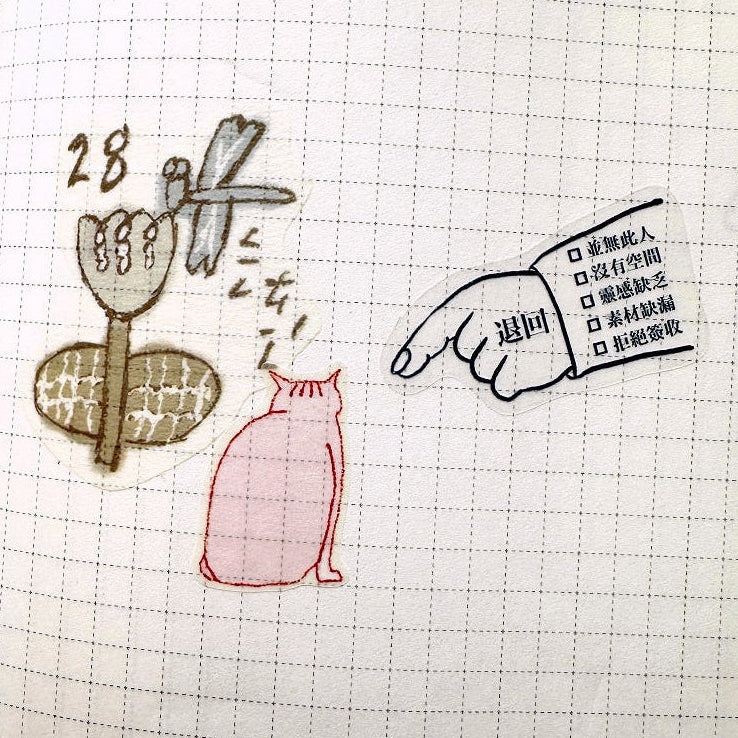 28
退回
並無此人
沒有空間
靈感缺乏
素材缺漏
拒絕簽收